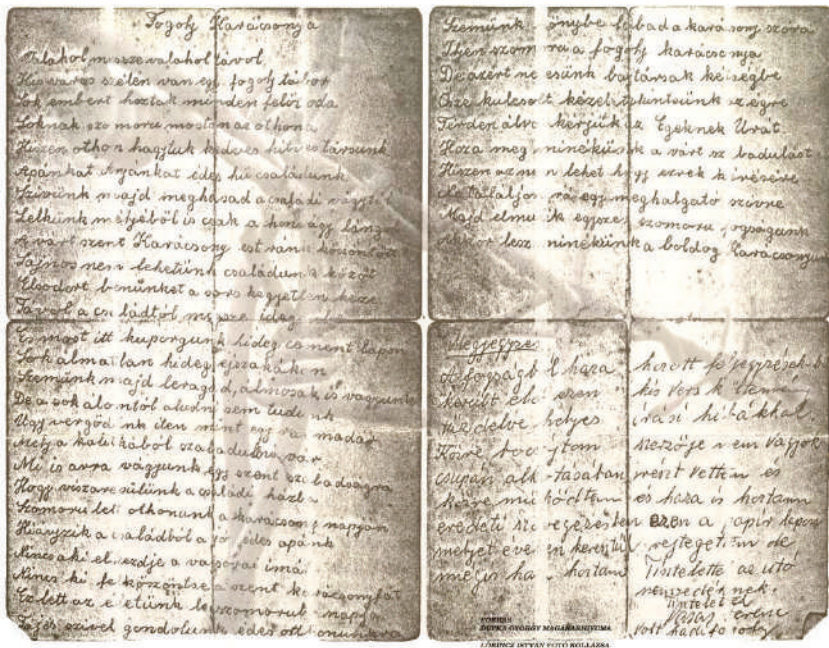 Fogoly Karácsonya
Valahol messze valahol távol
Kis város szélén van egy fogoly tábor
Sok embert hoztak minden felöl oda
Soknak szomoru mostan az othona
Hiszen othon hagytuk kedves hitvestársunk
Apánkat Anyánkat édes hű családunk
Szivünk majd meghasad a családi vágytol
Lelkünk mélyéből is csak a honvágy lángol
A várt szent Karácsony est ránk köszöntött
Sajnos nem lehetünk családunk között
Elsodort benünket a sors kegyetlen keze
Távol a családtól messze idegenbe
És most itt kuporgunk hideg cement lapon
Sok álmatlan hideg éjszakákon
Szemünk majd leragad, álmosak is vagyunk
De a sok álomtól aludni sem tudunk
Ugy vergődünk itten mint egy rab madár
Mely a kalitkából szabadulni vár
Mi is arra vágyunk egy szent szabadságra
Hogy viszakerülünk a családi házba
Szomoru lett othonunk a karácsony napján
Hiányzik a családból a jó édes apánk
Nincs aki elkezdje a vacsorai imát
Nincs ki fel köszöntse a szent karácsonyfát
Ez lett az életünk legszomorubb napja
Fájós szivel gondolunk édes otthonunkra
Szemünk könybe lábad a karácsony szóra
Ilyen szomorú a fogoly karácsonya
De azért ne esünk bajtársak kétségbe
Össze kulcsolt kézel tekintsünk az égre
Térden álva kérjük az Egeknek Urát
Hozza meg minékünk a várt szabadulást
Hiszen az nem lehet hogy ezrek kérésére
Ne találjon rá egy meghalgató szívre
Majd elmulik egyszer szomoru fogságunk
Akkor lesz minékünk a boldog Karácsonyunk
Megjegyzés
A fogságból haza hozott feljegyzések-ből
került elő ezen kis vers költemény
mellette helyes irási hibákkal.
Közre bocsájtom szerzője nem vagyok
csupán alkotásában részt vettem es
közre müködtem es haza is hoztam
eredeti szövegezésben ezen a papír lapon
melyet éveken keresztül rejtegettem de
mégis haza hoztam
az utó
nemzedéknek.
volt hadifogoly
FORRÁS
DUPKA GYÖRGY MAGÁNARCHÍVUMA
LŐRINCZ ISTVÁN FOTÓ KOLLÁZSA